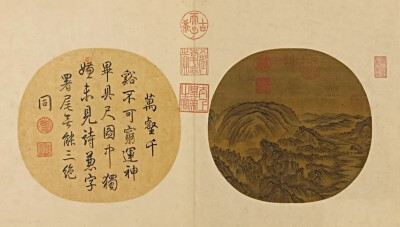 萬壑千
谿不可窮運神
畢具尺圖中獨
嫌未見詩兼字
署尾無能三絕
同